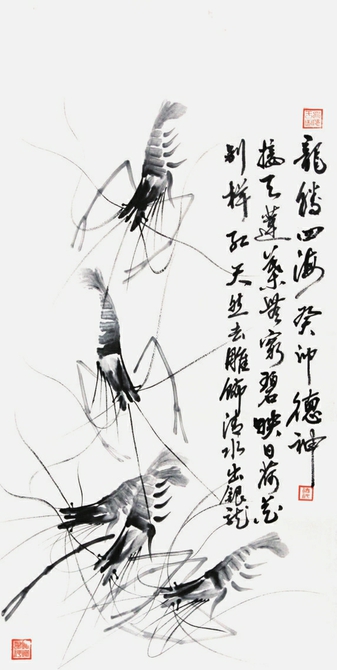 龍騰四海 癸卯 德神
接天蓮葉無窮碧 映日荷花
别樣红 天然去雕飾 清水出銀龍